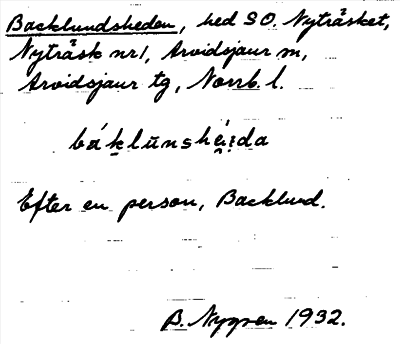 Backlundsheden, hed SO. Nyträsket,
Nyträsk nr1, Arvidsjaur sn,
Arvidsjaur tg, Norrb. l.
báklūnshé̩i̯da
Efter en person, Backlund.
B. Nygren 1932.